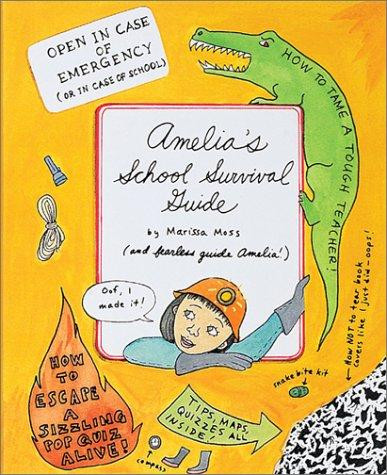 OPEN IN CASE
OF
EMERGENCY
(OR IN CASE OF SCHOOL)
HOW TO TAME A TOUGH TEACHER!
Amelia's
School Survival
Guide
by Marissa Moss
(and fearless guide Amelia!)
Oof, I
made it!
← How NOT to tear book
covers like I just did-oops!
HOW
TO
ESCAPE
A
SIZZLING
POP QUIZ
ALIVE!
snake bite kit
TIPS, MAPS,
QUIZZES ALL
INSIDE
compass